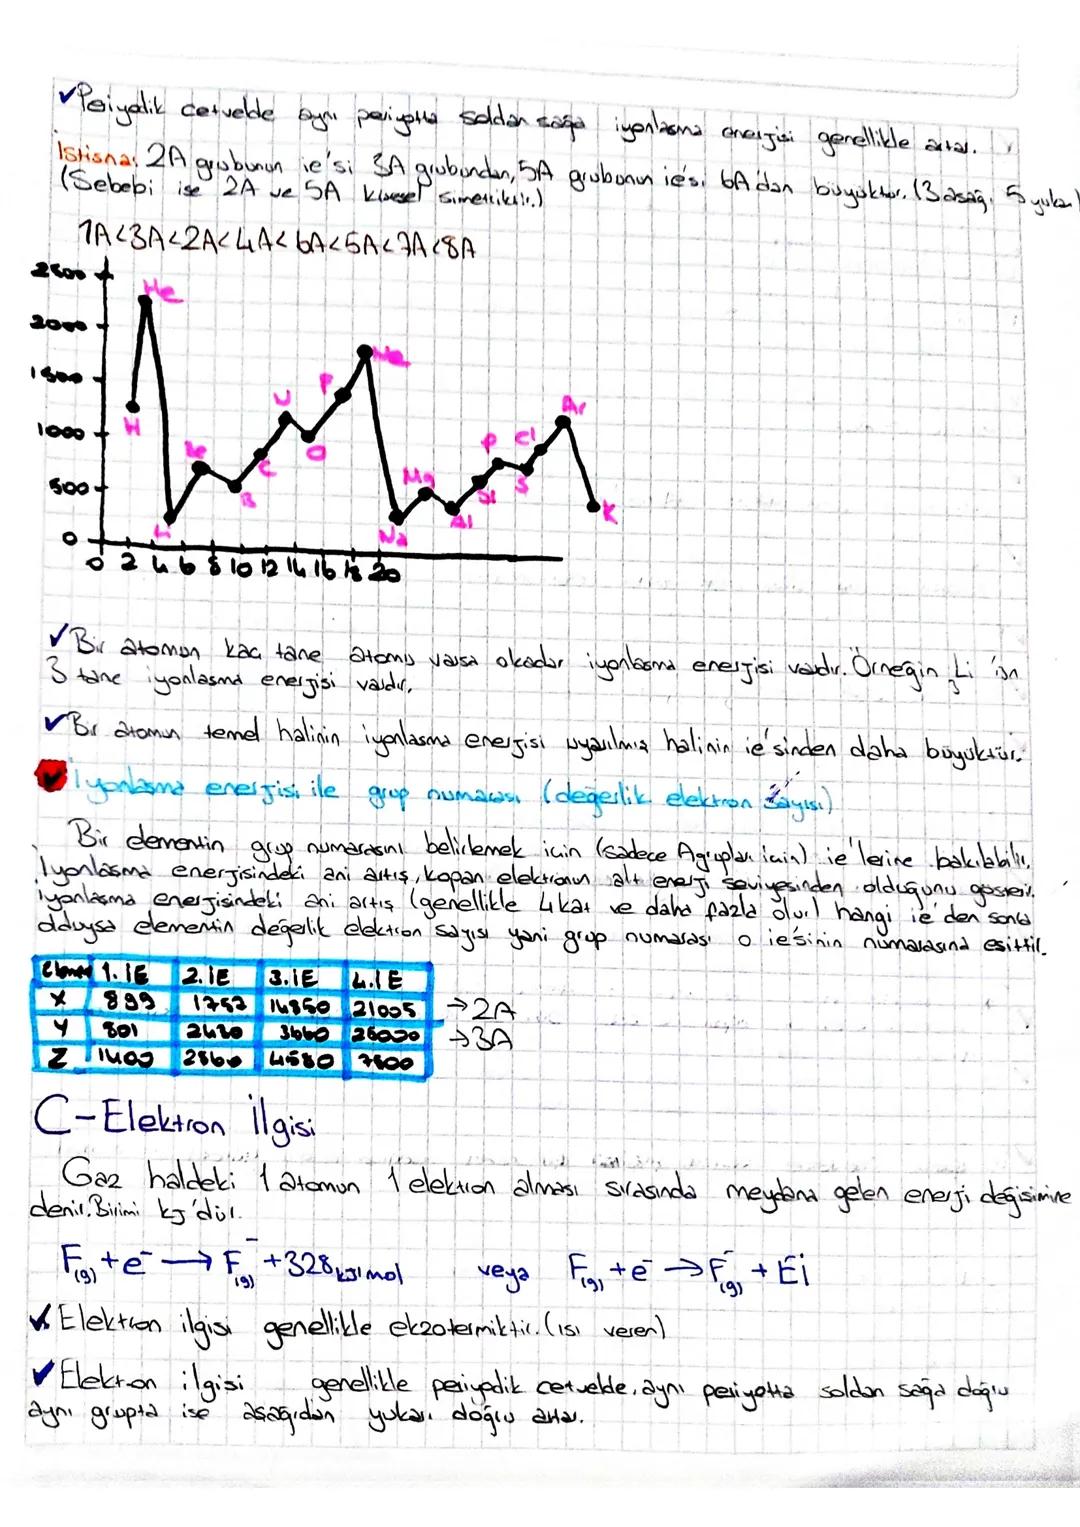 ✓Periyodik cetvelde aynı periyotta soldan sağa iyonlaşma enerjisi genellikle artar.
İstisna: 2A grubunun ie'si 3A grubundan, 5A grubunun ie'si 6A'dan büyüktür. (3 aşağı 5 yukarı)
(Sebebi ise 2A ve 5A küresel simetriktir.)
1A<3A<2A<4A<6A<5A<7A<8A
2500
He
2000
Ne
1500
F
Ar
U
H
P Cl
1000
O
Be
C
S
Mg
Si
500
B
Al
K
Li
Na
0
0 2 4 6 8 10 12 14 16 18 20
✓Bir atomun kaç tane atomu varsa okadar iyonlaşma enerjisi vardır. Örneğin ₃Li 'un
3 tane iyonlaşma enerjisi vardır.
✓Bir atomun temel halinin iyonlaşma enerjisi uyarılmış halinin ie'sinden daha büyüktür.
✓İyonlaşma enerjisi ile grup numarası (değerlik elektron sayısı)
Bir elementin grup numarasını belirlemek için (sadece A grupları için) ie'lerine bakılabilir.
İyonlaşma enerjisindeki ani artış, kopan elektronun alt enerji seviyesinden olduğunu gösterir.
İyonlaşma enerjisindeki ani artış (genellikle 4 kat ve daha fazla olur) hangi ie'den sonra
olduysa elementin değerlik elektron sayısı yani grup numarası o ie'sinin numarasına eşittir.
Element 1. İE 2. İE 3. İE 4. İE
X 899 1757 14850 21005 →2A
Y 801 2420 3660 26000 →3A
Z 1400 2860 4580 7500
C-Elektron İlgisi
Gaz haldeki 1 atomun 1 elektron alması sırasında meydana gelen enerji değişimine
denir. Birimi kj'dür.
F(g) + e⁻ → F⁻(g) +328 kj/mol veya F(g) + e⁻ → F⁻(g) + Ei
✓Elektron ilgisi genellikle ekzotermiktir. (ısı veren)
✓Elektron ilgisi genellikle periyodik cetvelde, aynı periyotta soldan sağa doğru
aynı grupta ise aşağıdan yukarı doğru artar.